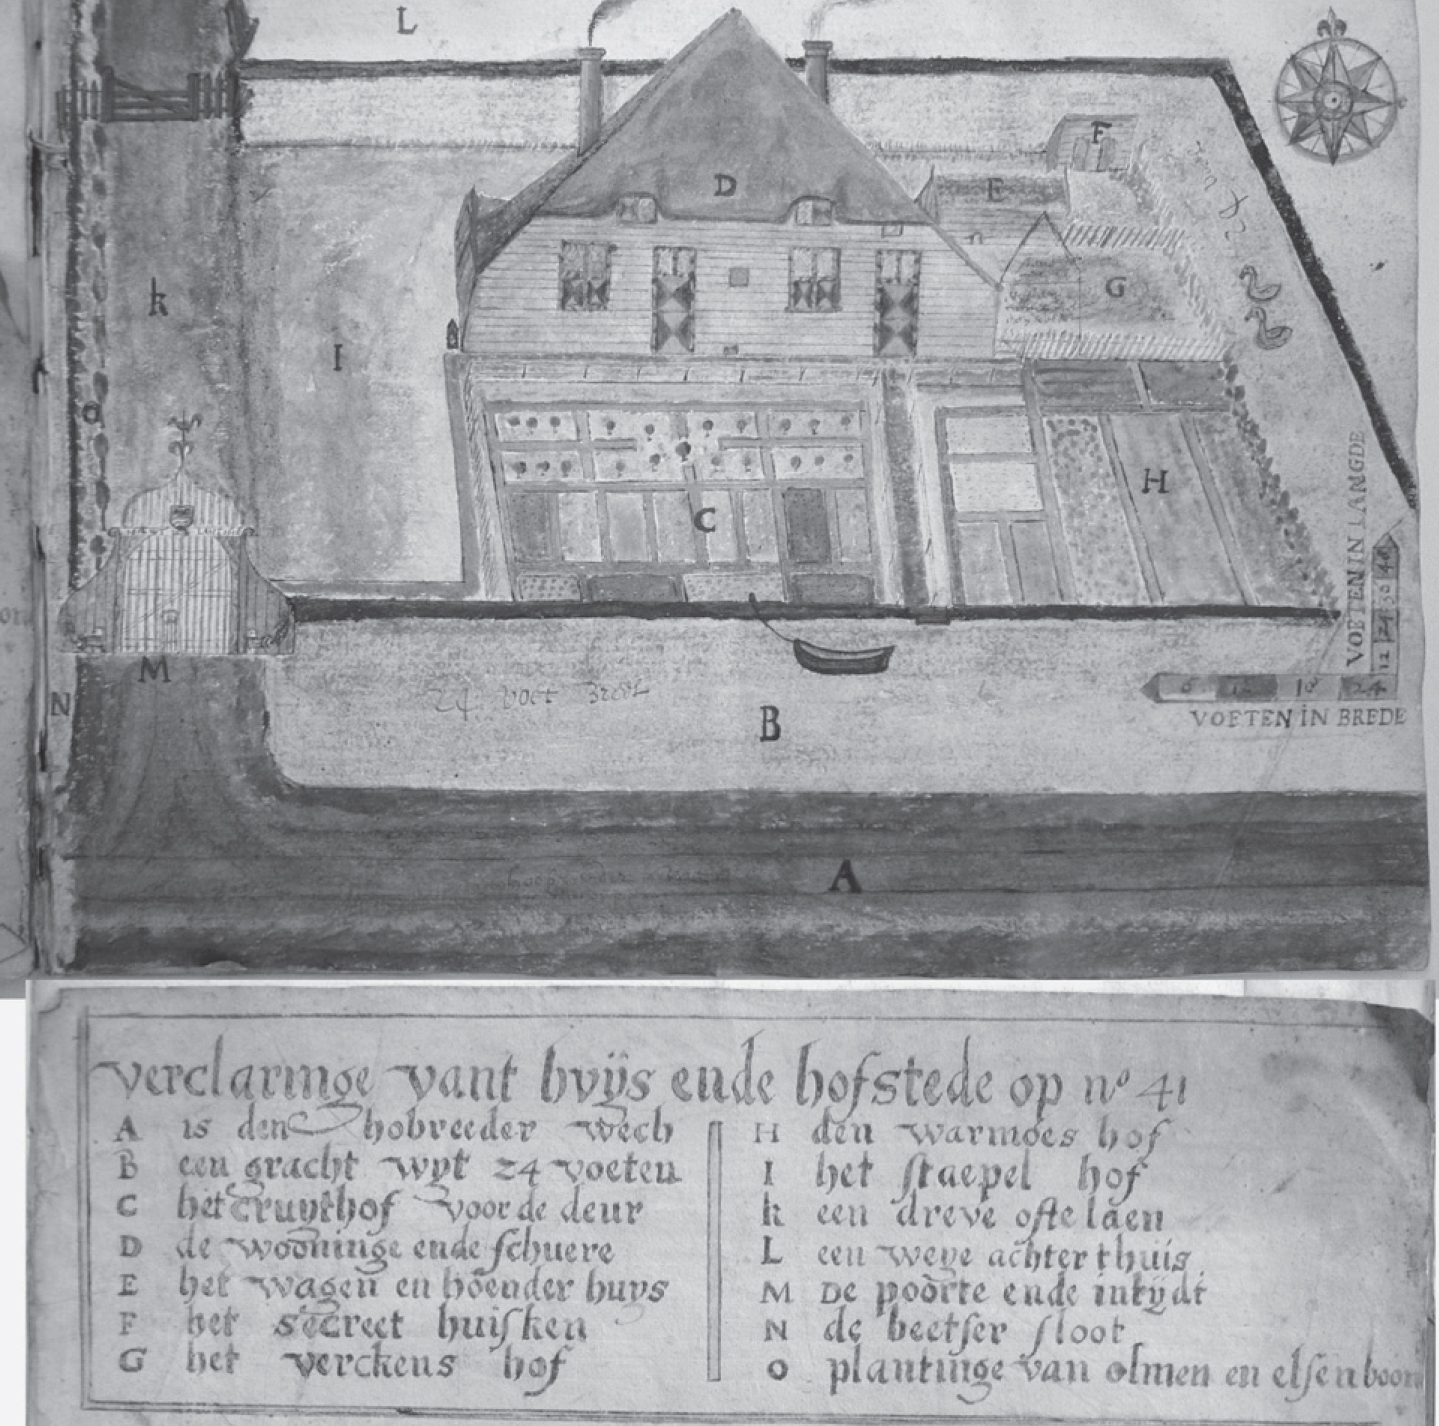 L
F
D
E
G
k
I
o
H
C
VOETEN IN LANGDE
12 24 30 40
M
N
24 voet Breet
B
6 12 18 24
VOETEN IN BREDE
A
verclaringe vant hvijs ende hofstede op nº 41
A is den hobreeder wech
B een gracht wyt 24 voeten
C het cruythof voor de deur
D de wooninge ende schuere
E het wagen en hoender huys
F het secreet huisken
G het verckens hof
H den warmoes hof
I het staepel hof
k een dreve ofte laen
L een weye achter thuis
M De poorte ende intydt
N de beetser sloot
O plantinge van olmen en elsen boom